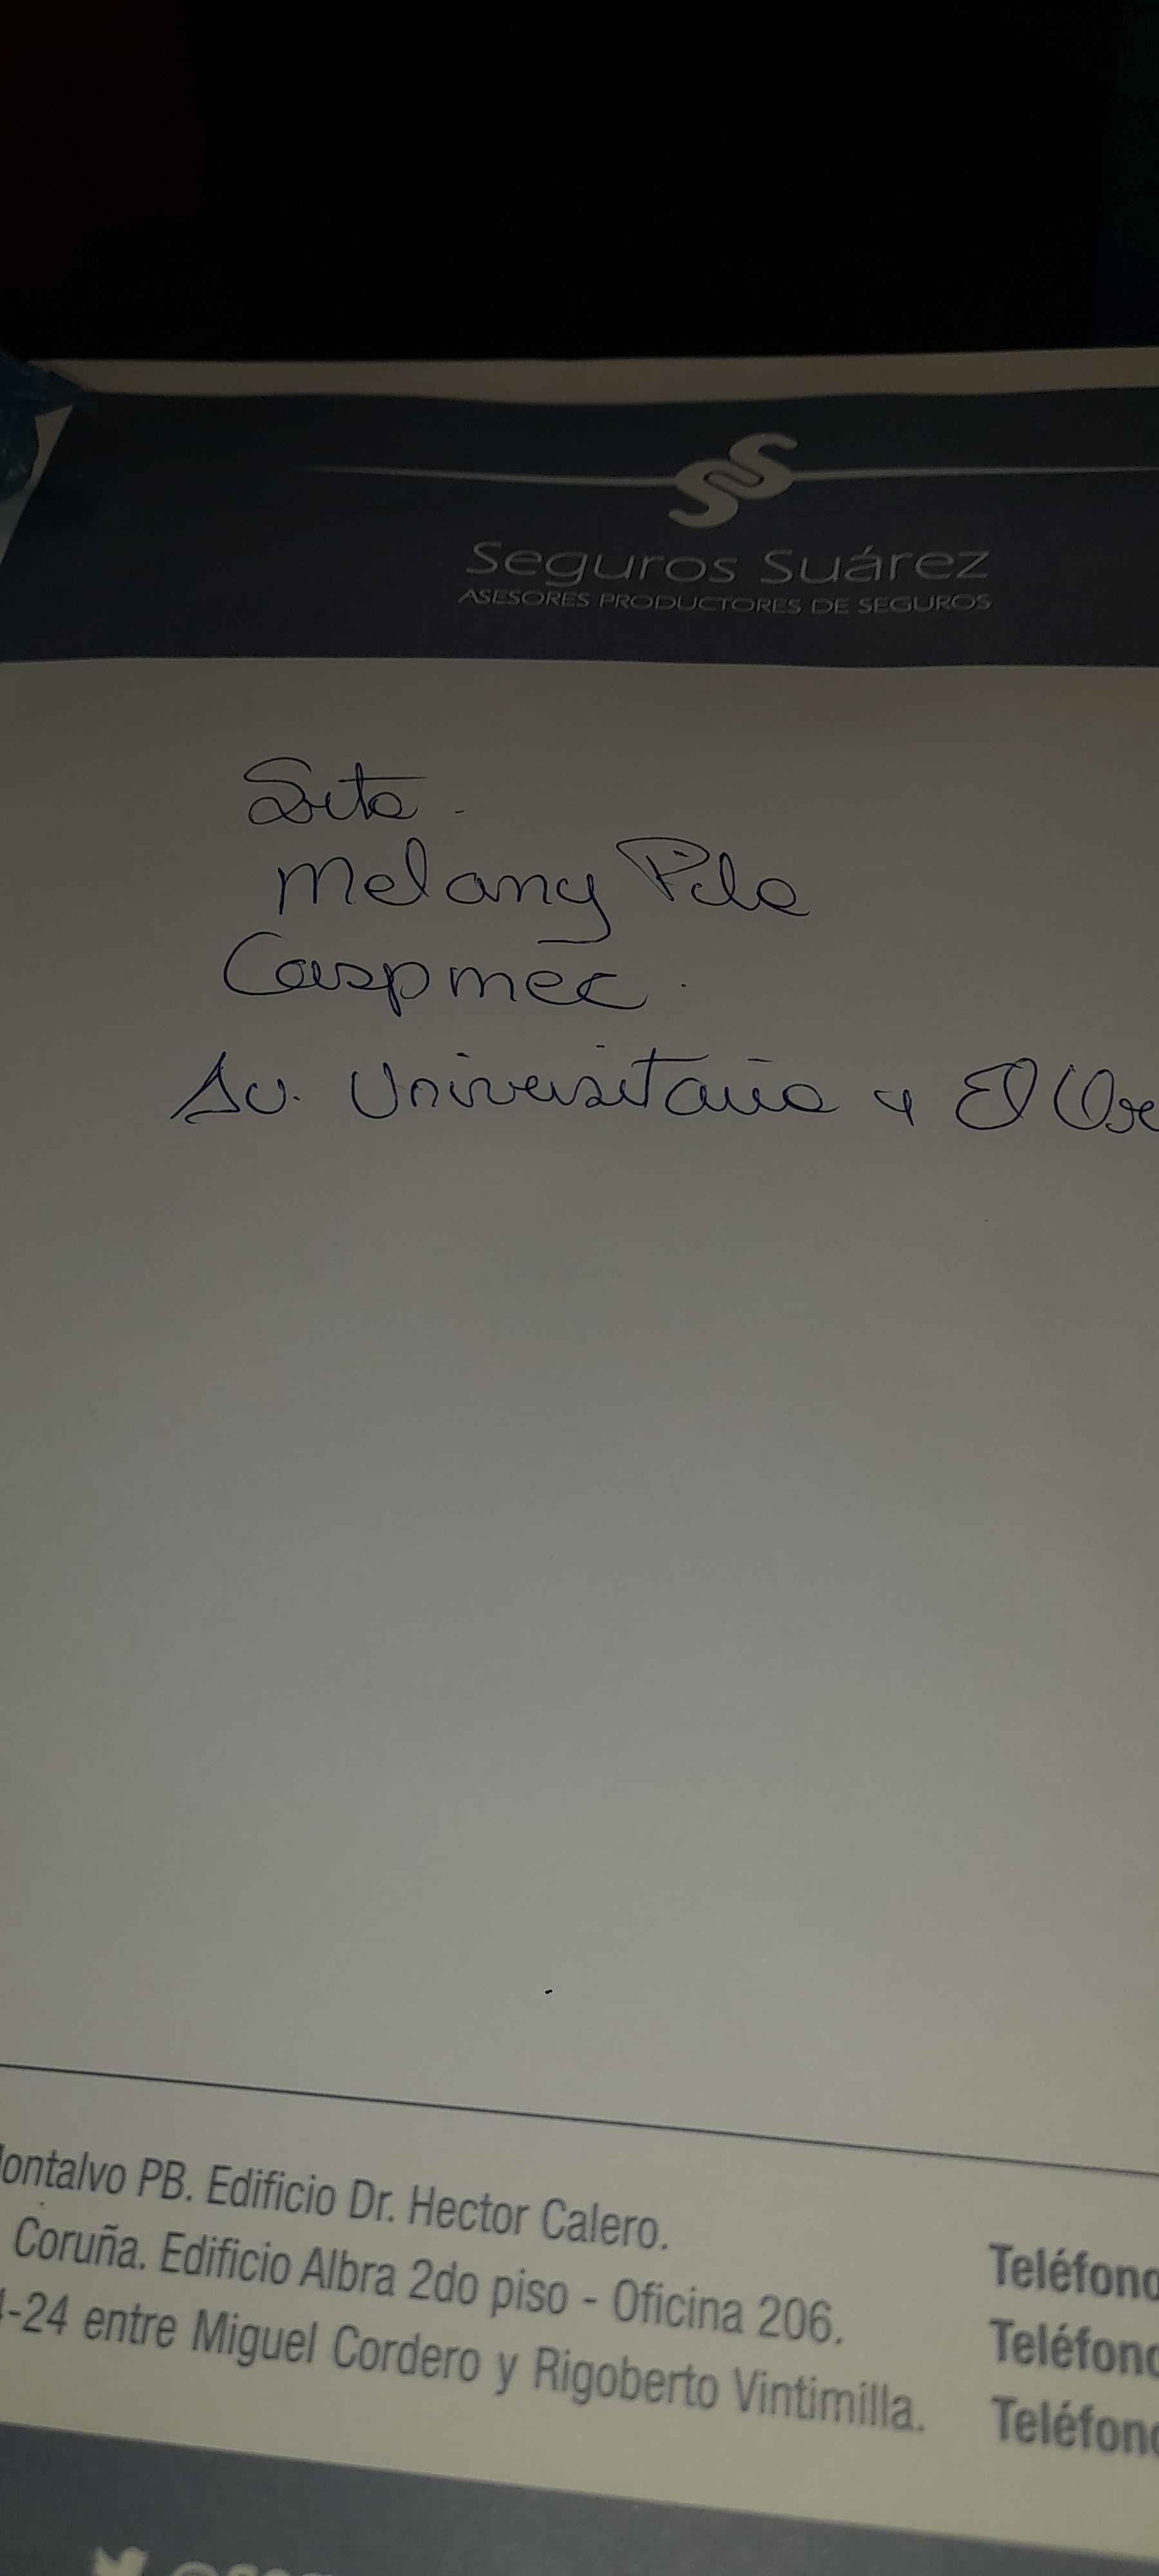 Seguros Suárez
ASESORES PRODUCTORES DE SEGUROS
Srta.
Melany Pila
Caspmec.
Av. Universitaria y El
ontalvo PB. Edificio Dr. Hector Calero.
Coruña. Edificio Albra 2do piso - Oficina 206.
-24 entre Miguel Cordero y Rigoberto Vintimilla.
Teléfono
Teléfono
Teléfono